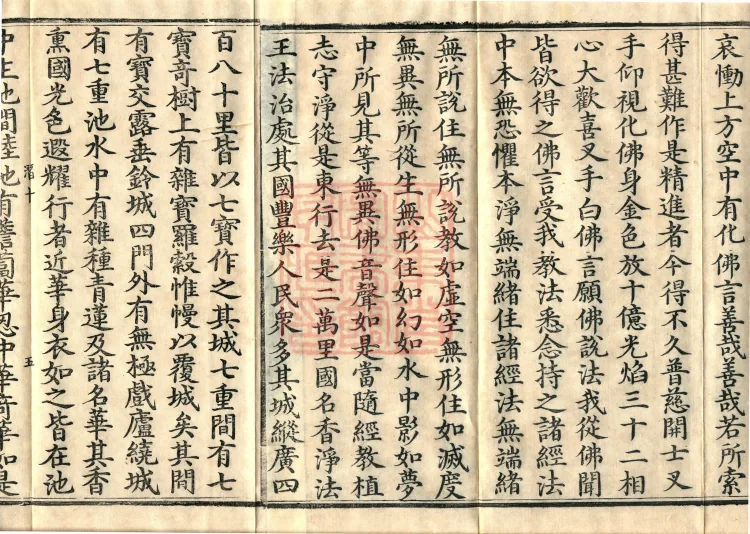 哀慟上方空中有化佛言善哉善哉若所索
得甚難作是精進者今得不久普慈開士叉
手仰視化佛身金色放十億光焰三十二相
心大歡喜叉手白佛言願佛說法我從佛聞
皆欲得之佛言受我教法悉念持之諸經法
中本無恐懼本淨無端緒住諸經法無端緒
無所說住無所說教如虛空無形住如滅度
無異無所從生無形住如幻如水中影如夢
中所見其等無異佛音聲如是當隨經教植
志守淨從是東行去是二萬里國名香淨法
王法治處其國豐樂人民眾多其城縱廣四
百八十里皆以七寶作之其城七重間有七
寶奇樹上有雜寶羅縠帷幔以覆城矣其間
有寶交露垂鈴城四門外有無極戲廬繞城
有七重池水中有雜種青蓮及諸名華其香
熏國光色遐耀行者近華身衣如之皆在池
潛十
五
中生池間陸地有薝蔔華怱中華奇華如是